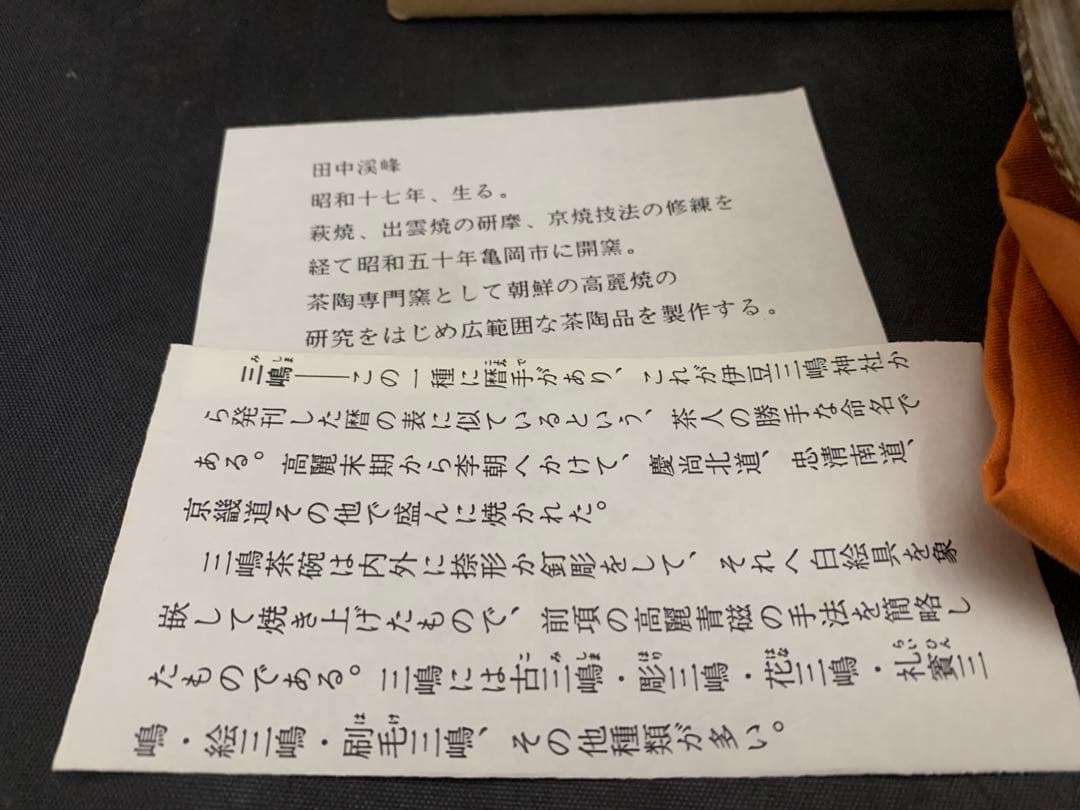 田中渓峰
昭和十七年、生る。
萩焼、出雲焼の研摩、京焼技法の修練を
経て昭和五十年亀岡市に開窯。
茶陶専門窯として朝鮮の高麗焼の
研究をはじめ広範囲な茶陶品を製作する。
三嶋――この一種に暦手があり、これが伊豆三嶋神社か
ら発刊した暦の表に似ているという、茶人の勝手な命名で
ある。高麗末期から李朝へかけて、慶尚北道、忠清南道、
京畿道その他で盛んに焼かれた。
三嶋茶碗は内外に捺形か釘彫をして、それへ白絵具を象
嵌して焼き上げたもので、前項の高麗青磁の手法を簡略し
たものである。三嶋には古三嶋・彫三嶋・花三嶋・礼賓三
嶋・絵三嶋・刷毛三嶋、その他種類が多い。